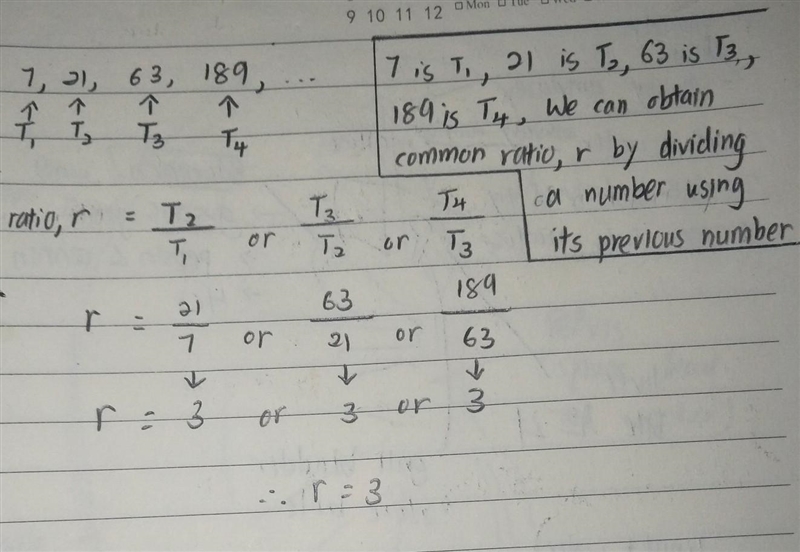 9 10 11 12 □Mon □Tue
7, 21, 63, 189, ...
↑ ↑ ↑ ↑
T₁ T₂ T₃ T₄
7 is T₁, 21 is T₂, 63 is T₃,
189 is T₄, We can obtain
common ratio, r by dividing
a number using
its previous number
ratio, r = T₂/T₁ or T₃/T₂ or T₄/T₃
r = 21/7 or 63/21 or 189/63
↓ ↓ ↓
r = 3 or 3 or 3
∴ r = 3